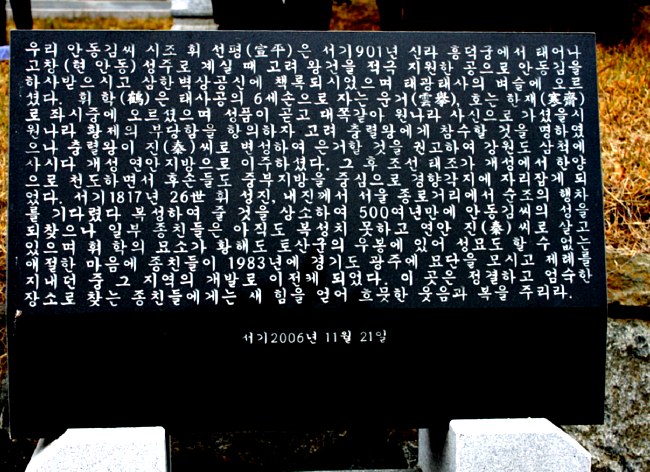 우리 안동김씨 시조 휘 선평(宣平)은 서기901년 신라 흥덕궁에서 태어나
고창(현 안동)성주로 계실 때 고려 왕건을 적극 지원한 공으로 안동김을
하사받으시고 삼한벽상공신에 책록되시었으며 태광태사의 벼슬에 오르
셨다. 휘 학(鶴)은 태사공의 6세손으로 자는 운거(雲擧), 호는 한재(寒齋)
로 좌시중에 오르셨으며 성품이 곧고 대쪽같아 원나라 사신으로 가셨을시
원나라 황제의 부당함을 항의하자 고려 충렬왕에게 참수할 것을 명하였
으나 충렬왕이 진(秦)씨로 변성하여 은거할 것을 권고하여 강원도 삼척에
사시다 개성 연안지방으로 이주하셨다. 그 후 조선 태조가 개성에서 한양
으로 천도하면서 후손들도 중부지방을 중심으로 경향각지에 자리잡게 되
었다. 서기1817년 26世 휘 성진, 내진께서 서울 종로거리에서 순조의 행차
를 기다렸다 복성하여 줄 것을 상소하여 500여년만에 안동김씨의 성을
되찾으나 일부 종친들은 아직도 복성치 못하고 연안 진(秦)씨로 살고
있으며 휘 학의 묘소가 황해도 토산군의 우봉에 있어 성묘도 할 수 없는
애절한 마음에 종친들이 1983년에 경기도 광주에 묘단을 모시고 제례를
지내던 중 그 지역의 개발로 이전케 되었다. 이 곳은 정결하고 엄숙한
장소로 찾는 종친들에게는 새 힘을 얻어 흐뭇한 웃음과 복을 주리라.
서기2006년 11월 21일